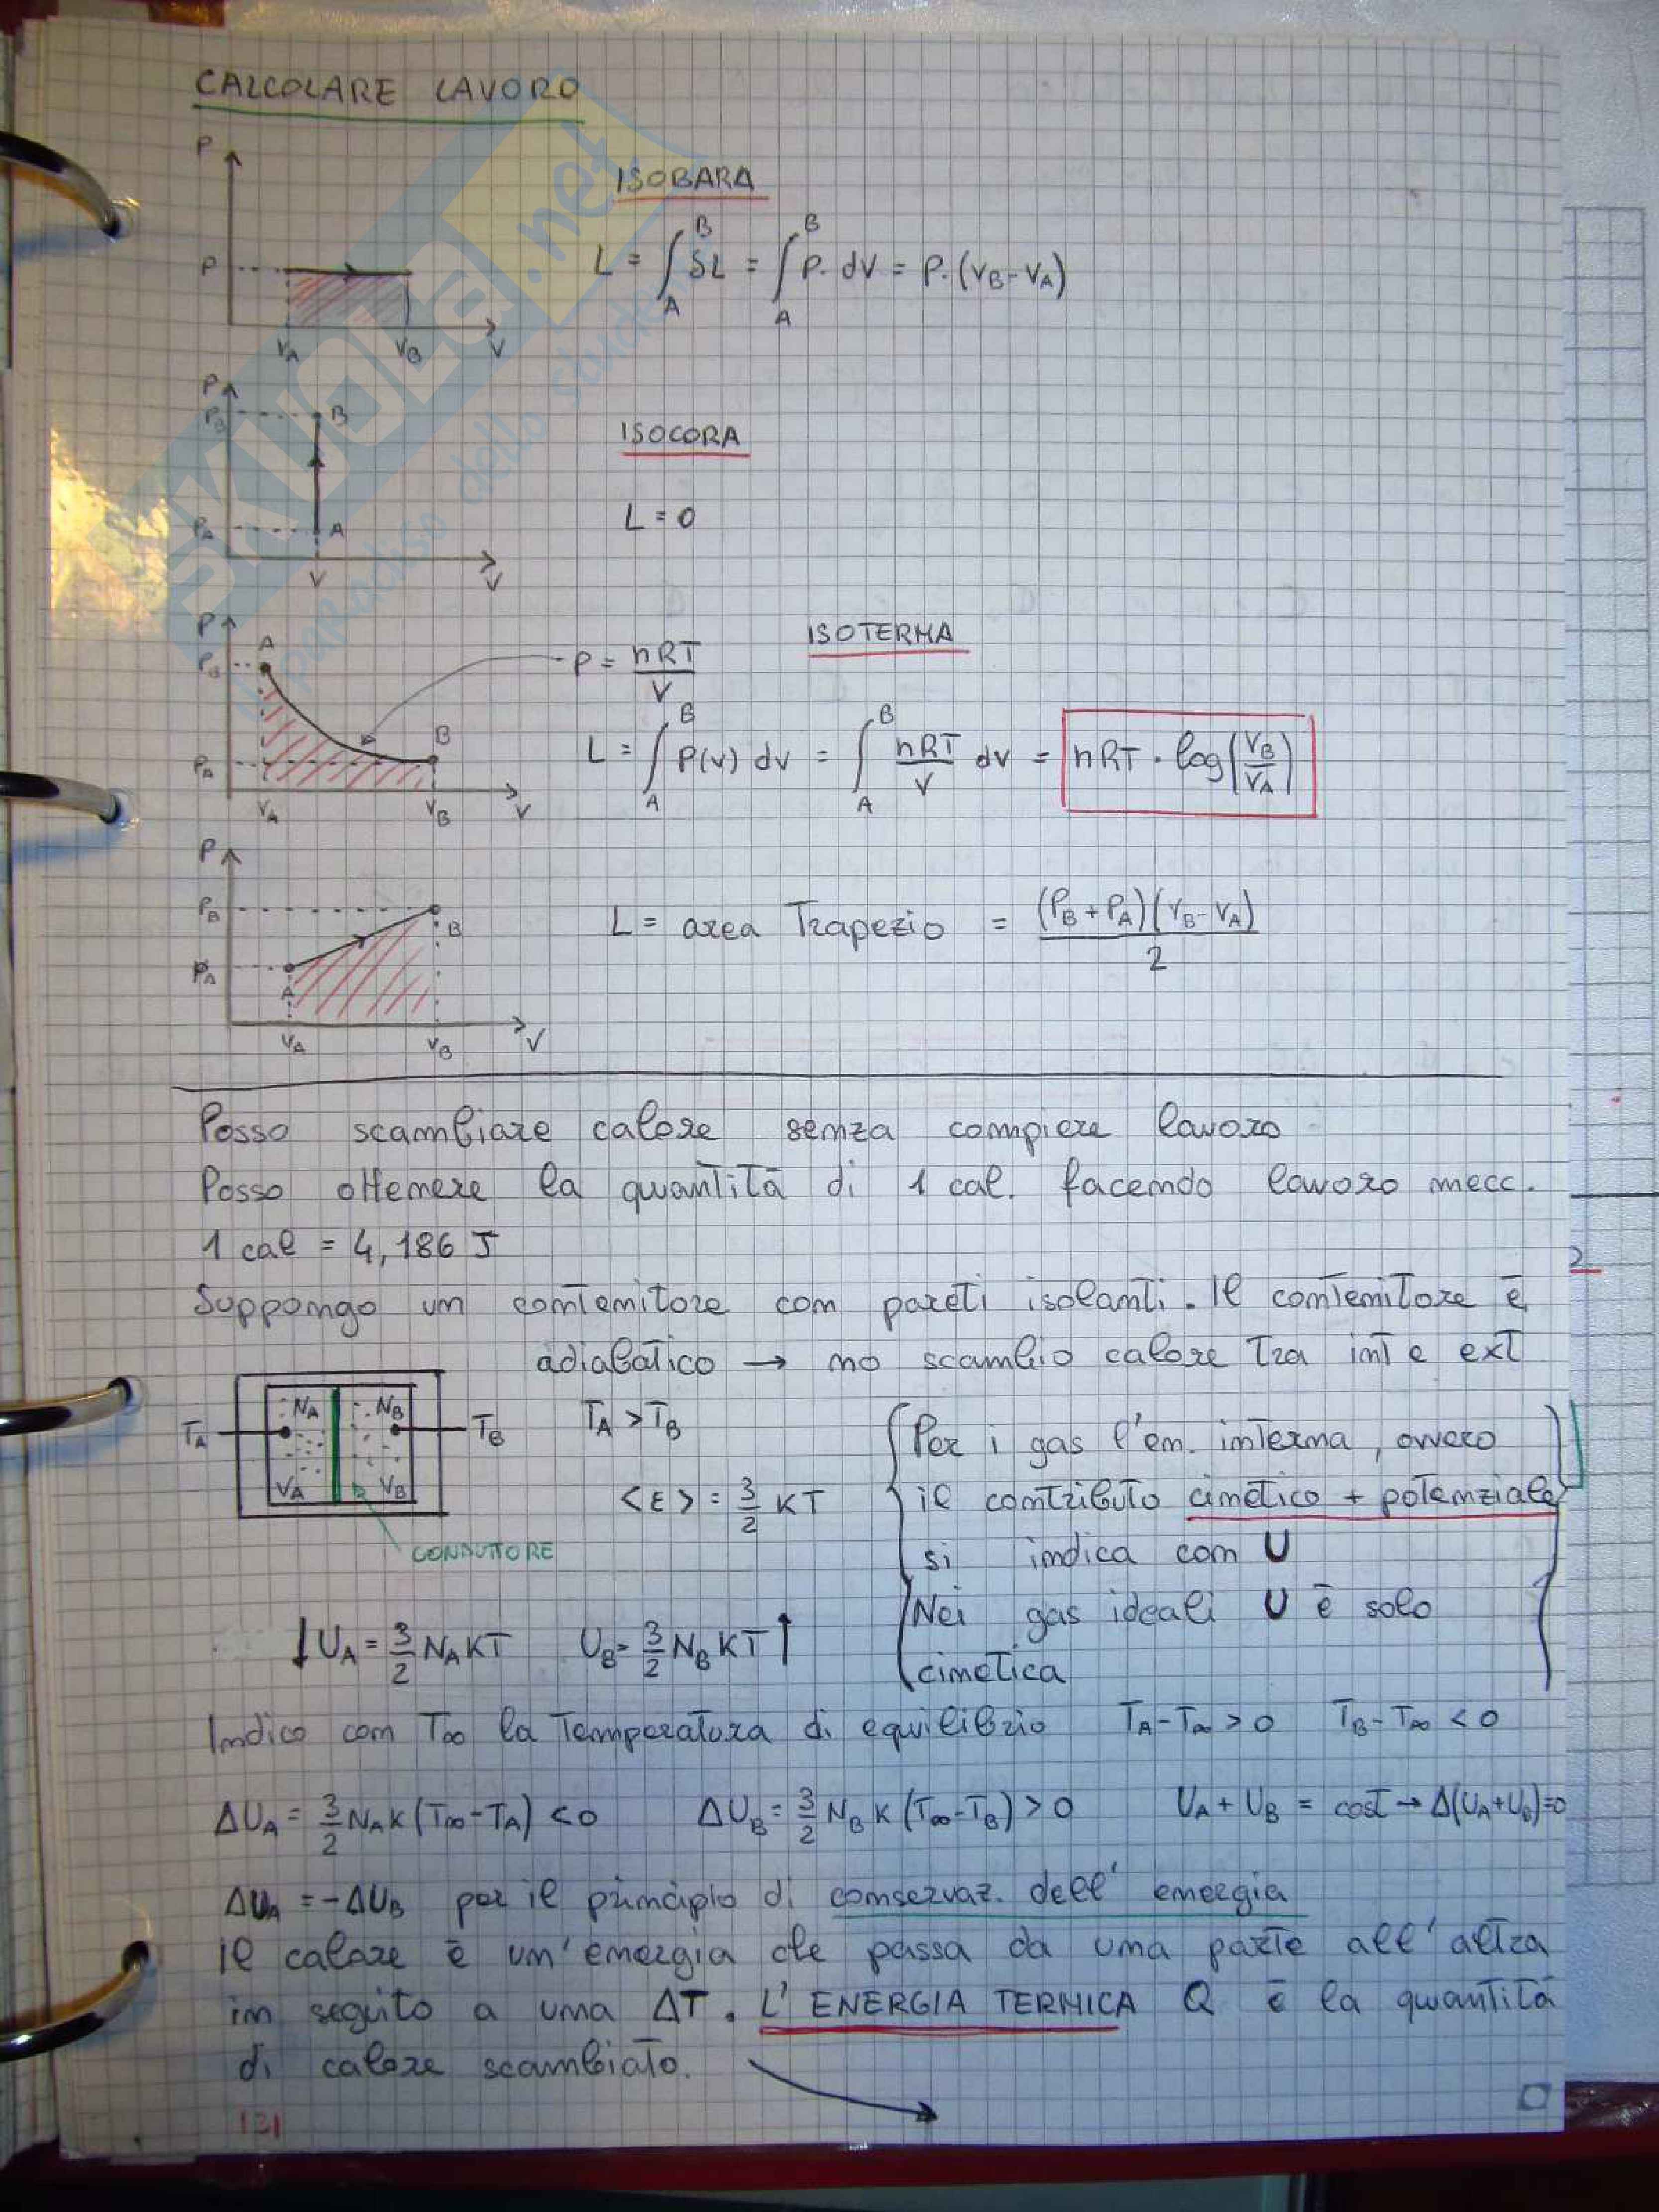 CALCOLARE LAVORO
P
P
VA VB V
ISOBARA
L = ∫_A^B δL = ∫_A^B P · dV = P · (VB - VA)
P
PB B
PA A
V V
ISOCORA
L = 0
P
A
PB
PA
B
VA VB V
P = nRT/V
ISOTERMA
L = ∫_A^B P(V) dV = ∫_A^B nRT/V dV = nRT · log(VB/VA)
P
PB
B
PA
A
VA VB V
L = area Trapezio = (PB + PA)(VB - VA)/2
Posso scambiare calore senza compiere lavoro
Posso ottenere la quantità di 1 cal. facendo lavoro mecc.
1 cal = 4,186 J
Suppongo un contenitore con pareti isolanti. Il contenitore è
adiabatico → no scambio calore tra int e ext
TA NA NB TB
VA VB
CONDUTTORE
TA > TB
<E> = 3/2 KT
Per i gas l'en. interna, ovvero
il contributo cinetico + potenziale
si indica con U
Nei gas ideali U è solo
cinetica
↓ UA = 3/2 NA KT UB = 3/2 NB KT ↑
Indico con T∞ la Temperatura di equilibrio TA - T∞ > 0 TB - T∞ < 0
ΔUA = 3/2 NA K (T∞ - TA) < 0 ΔUB = 3/2 NB K (T∞ - TB) > 0 UA + UB = cost → Δ(UA + UB) = 0
ΔUA = -ΔUB per il principio di conservaz. dell' energia
il calore è un' energia che passa da una parte all' altra
in seguito a una ΔT. L' ENERGIA TERMICA Q è la quantità
di calore scambiato.
131
2
SKUOLa.net
il paradiso dello studente